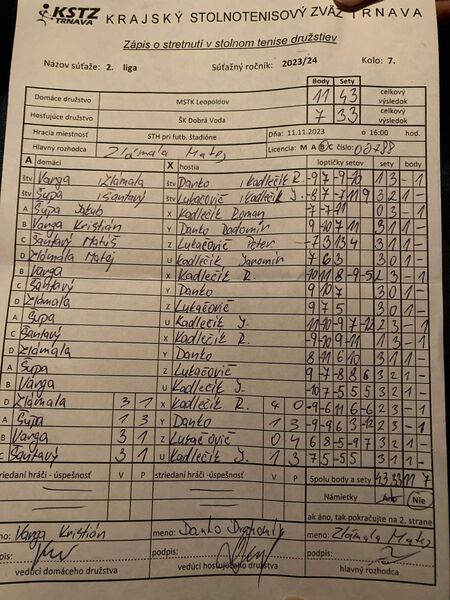 KSTZ
TRNAVA
KRAJSKÝ STOLNOTENISOVÝ ZVÄZ TRNAVA
Zápis o stretnutí v stolnom tenise družstiev
Názov súťaže: 2. liga Súťažný ročník: 2023/24 Kolo: 7.
Body Sety
Domáce družstvo MSTK Leopoldov 11 43 celkový výsledok
Hosťujúce družstvo ŠK Dobrá Voda 7 33 celkový výsledok
Hracia miestnosť STH pri futb. štadióne Dňa: 11.11.2023 o 16:00 hod.
Hlavný rozhodca Zlámala Matej Licencia: M A B C číslo: 00788
A domáci X hostia loptičky setov sety body
štv Vanga Zlámala štv Danko Kadlečík R. -9 7 -9 -10 1 3 - 1
štv Šupa Šantavý štv Lukačovič Kadlečík J. -8 7 -7 11 9 3 2 1 -
A Šupa Jakub X Kadlečík Roman -7 -7 -11 0 3 - 1
B Vanga Kristián Y Danko 9 -10 7 11 3 1 1 -
C Šantavý Matúš Z Lukačovič Peter -7 3 13 4 3 1 1 -
D Zlámala Matej U Kadlečík Jaromír 7 6 3 3 0 1 -
B Vanga X Kadlečík R. 2 3 - 1
C Šantavý Y Danko 9 10 7 3 0 1 -
D Zlámala Z Lukačovič 9 7 5 3 0 1 -
A Šupa U Kadlečík J. 2 3 - 1
C Šantavý X Kadlečík R. -9 -10 9 -11 1 3 - 1
D Zlámala Y Danko 3 1 1 -
A Šupa Z Lukačovič 9 -7 -8 8 6 3 2 1 -
B Vanga U Kadlečík J. -10 7 -5 5 5 3 2 1 -
D Zlámala 3 1 X Kadlečík R. 4 0 -9 -6 11 6 -6 2 3 - 1
A Šupa 1 3 Y Danko 1 3 -9 -9 6 3 -12 2 3 - 1
B Vanga 3 1 Z Lukačovič 0 4 6 8 -5 -9 7 3 2 1 -
C Šantavý 3 1 U Kadlečík J. 1 3 7 5 -5 5 3 1 1 -
striedaní hráči - úspešnosť V P striedaní hráči - úspešnosť V P Spolu body a sety 43 33 11 7
Námietky Áno Nie
ak áno, tak pokračujte na 2. strane
meno: Vanga Kristián meno: Danko meno: Zlámala Matej
podpis: podpis: podpis:
vedúci domáceho družstva vedúci hosťujúceho družstva hlavný rozhodca